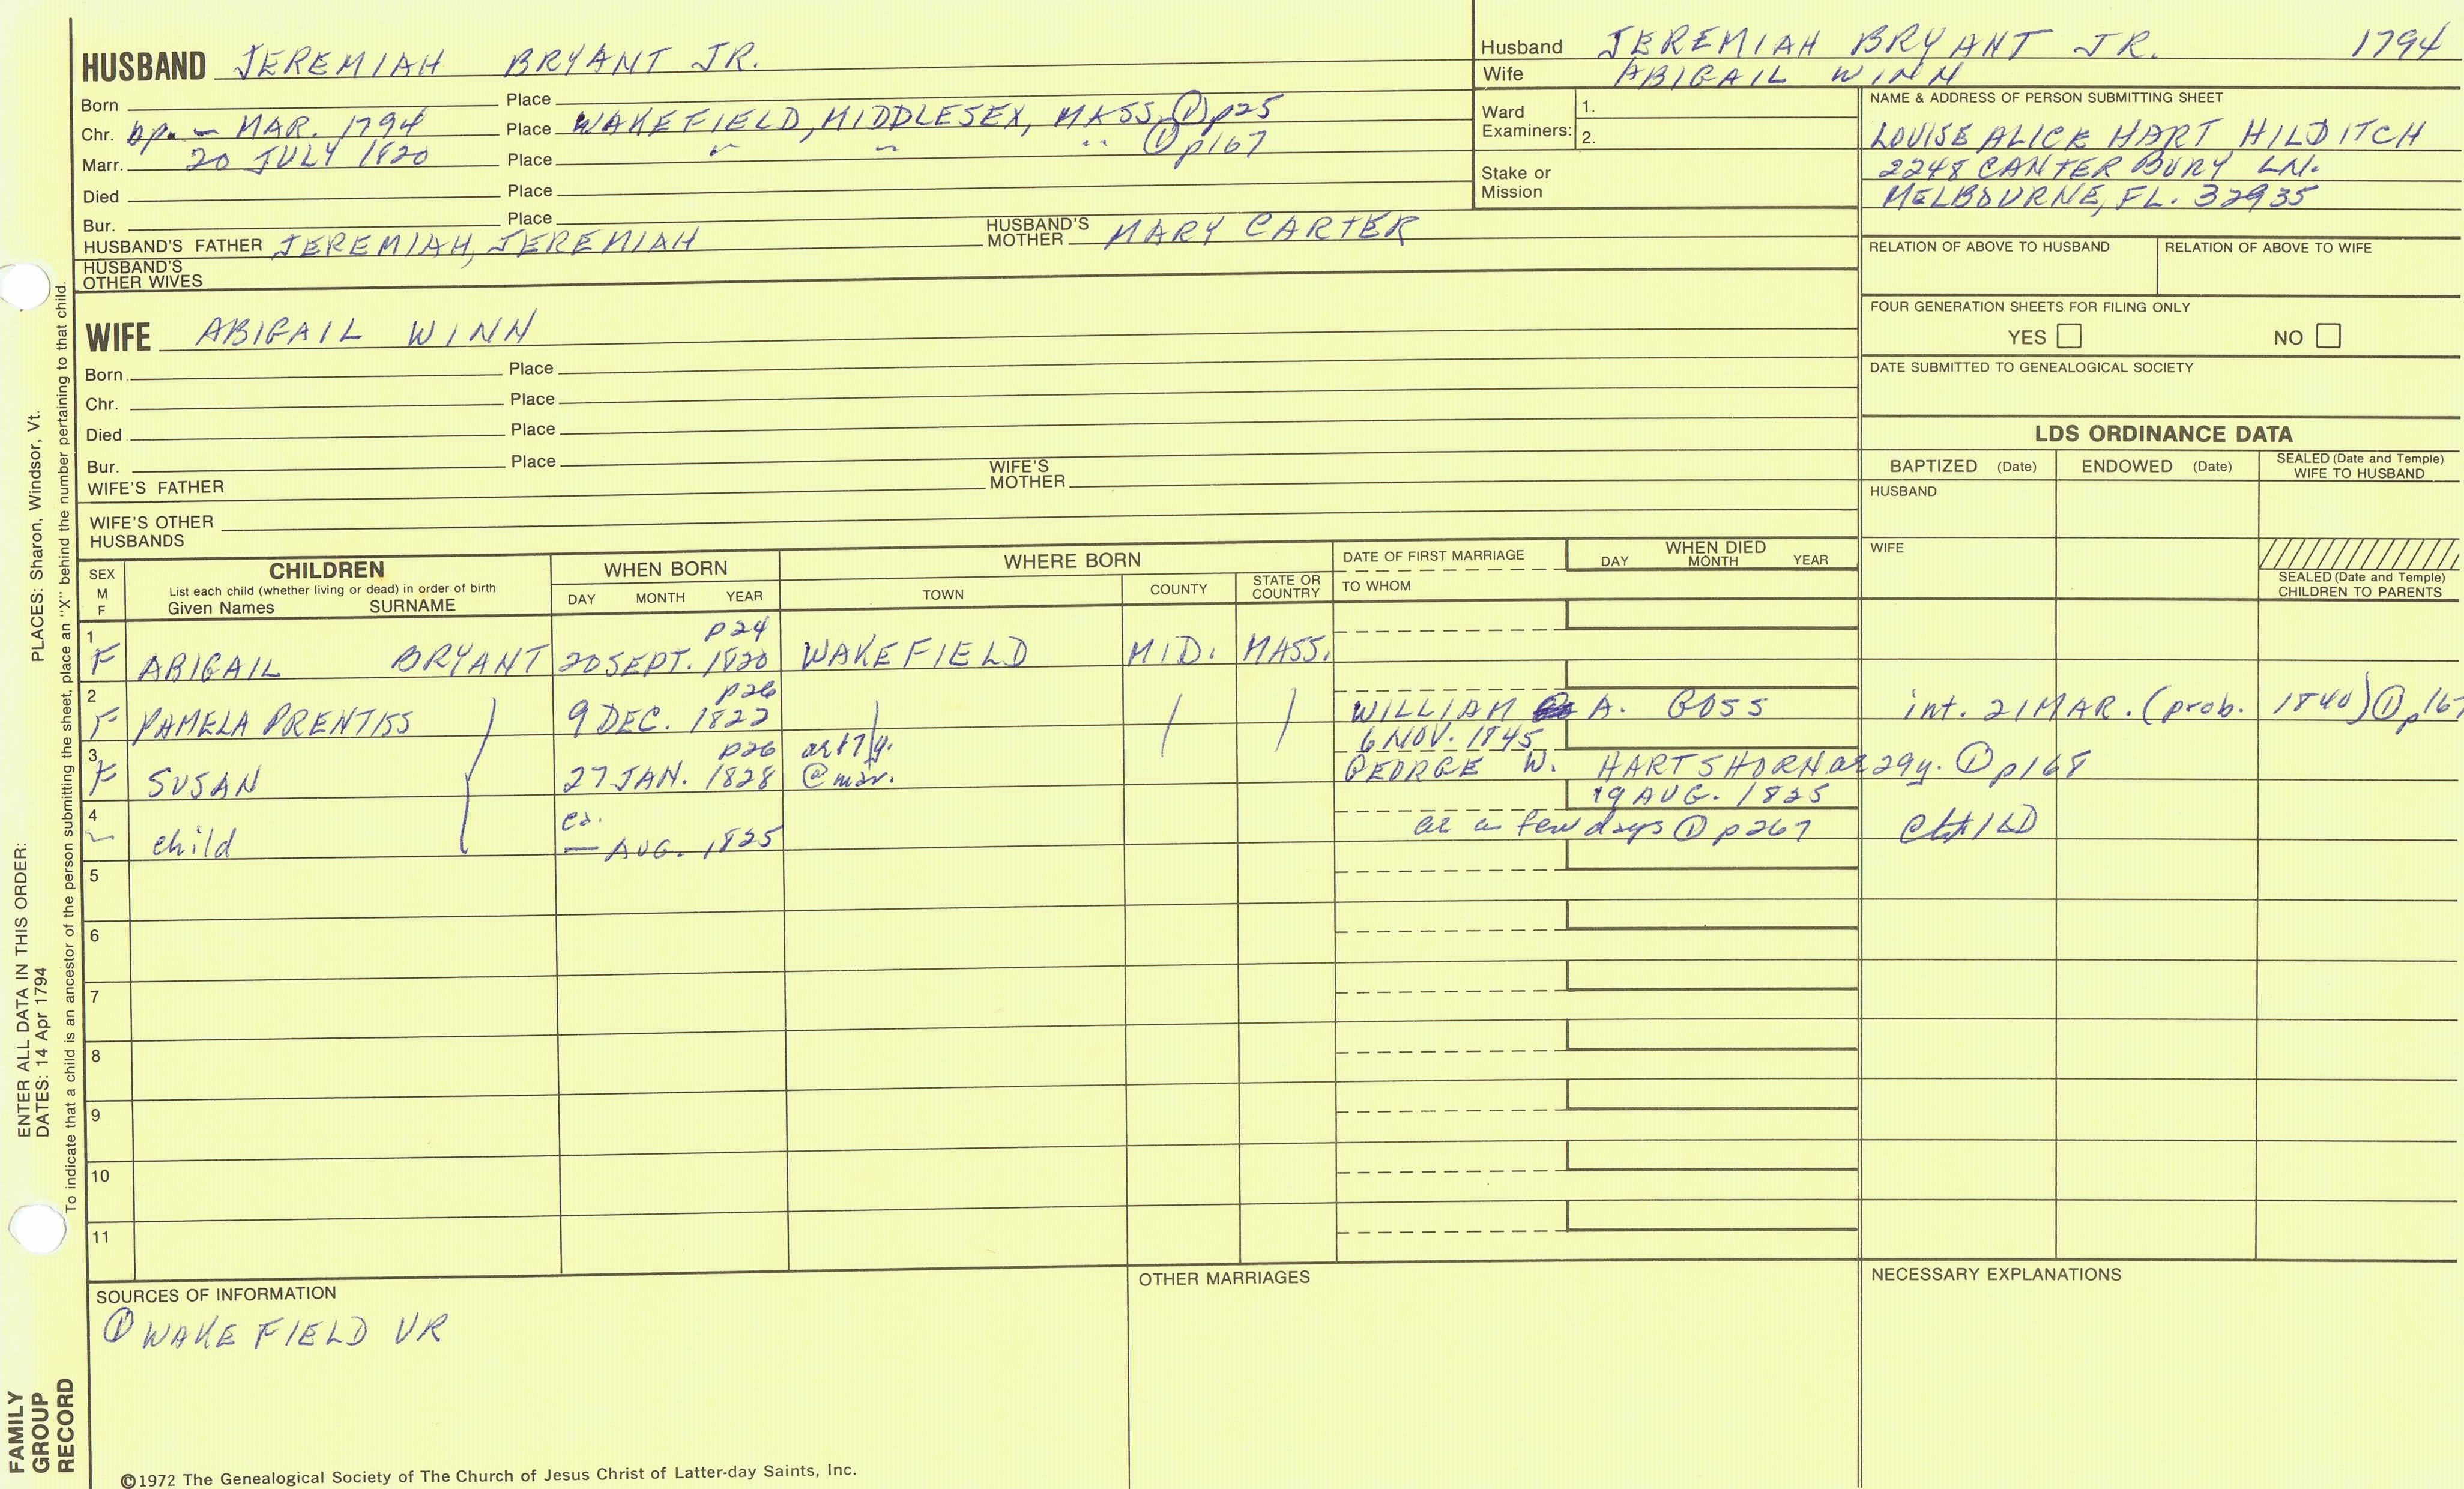 HUSBAND JEREMIAH BRYANT JR.
Born Place
Chr. bp. - MAR. 1794 Place WAKEFIELD, MIDDLESEX, MASS. ① p25
Marr. 20 JULY 1820 Place " " " ① p167
Died Place
Bur. Place
HUSBAND'S FATHER JEREMIAH, JEREMIAH HUSBAND'S MOTHER MARY CARTER
HUSBAND'S OTHER WIVES
Husband JEREMIAH BRYANT JR. 1794
Wife ABIGAIL WINN
Ward Examiners: 1.
2.
Stake or Mission
NAME & ADDRESS OF PERSON SUBMITTING SHEET
LOUISE ALICE HART HILDITCH
2248 CANTERBURY LN.
MELBOURNE, FL. 32935
RELATION OF ABOVE TO HUSBAND RELATION OF ABOVE TO WIFE
FOUR GENERATION SHEETS FOR FILING ONLY
YES NO
DATE SUBMITTED TO GENEALOGICAL SOCIETY
WIFE ABIGAIL WINN
Born Place
Chr. Place
Died Place
Bur. Place
WIFE'S FATHER WIFE'S MOTHER
WIFE'S OTHER HUSBANDS
LDS ORDINANCE DATA
BAPTIZED (Date) ENDOWED (Date) SEALED (Date and Temple) WIFE TO HUSBAND
HUSBAND
WIFE
SEALED (Date and Temple) CHILDREN TO PARENTS
SEX M F
CHILDREN
List each child (whether living or dead) in order of birth
Given Names SURNAME
WHEN BORN
DAY MONTH YEAR
WHERE BORN
TOWN COUNTY STATE OR COUNTRY
DATE OF FIRST MARRIAGE
TO WHOM
WHEN DIED
DAY MONTH YEAR
1 p24
F ABIGAIL BRYANT 20 SEPT. 1820 WAKEFIELD MID. MASS.
2 p26
F PAMELA PRENTISS 9 DEC. 1822 WILLIAM A. GOSS int. 21 MAR. (prob. 1840) ① p167
3 p26 ae 17y. 6 NOV. 1845
F SUSAN 27 JAN. 1828 @ mar. GEORGE W. HARTSHORN ae 29y. ① p168
4 ca. 19 AUG. 1825
- child — AUG. 1825 ae a few days ① p267 CHILD
5
6
7
8
9
10
11
SOURCES OF INFORMATION
① WAKEFIELD VR
OTHER MARRIAGES
NECESSARY EXPLANATIONS
©1972 The Genealogical Society of The Church of Jesus Christ of Latter-day Saints, Inc.
FAMILY GROUP RECORD
ENTER ALL DATA IN THIS ORDER:
DATES: 14 Apr 1794
PLACES: Sharon, Windsor, Vt.
To indicate that a child is an ancestor of the person submitting the sheet, place an "X" behind the number pertaining to that child.